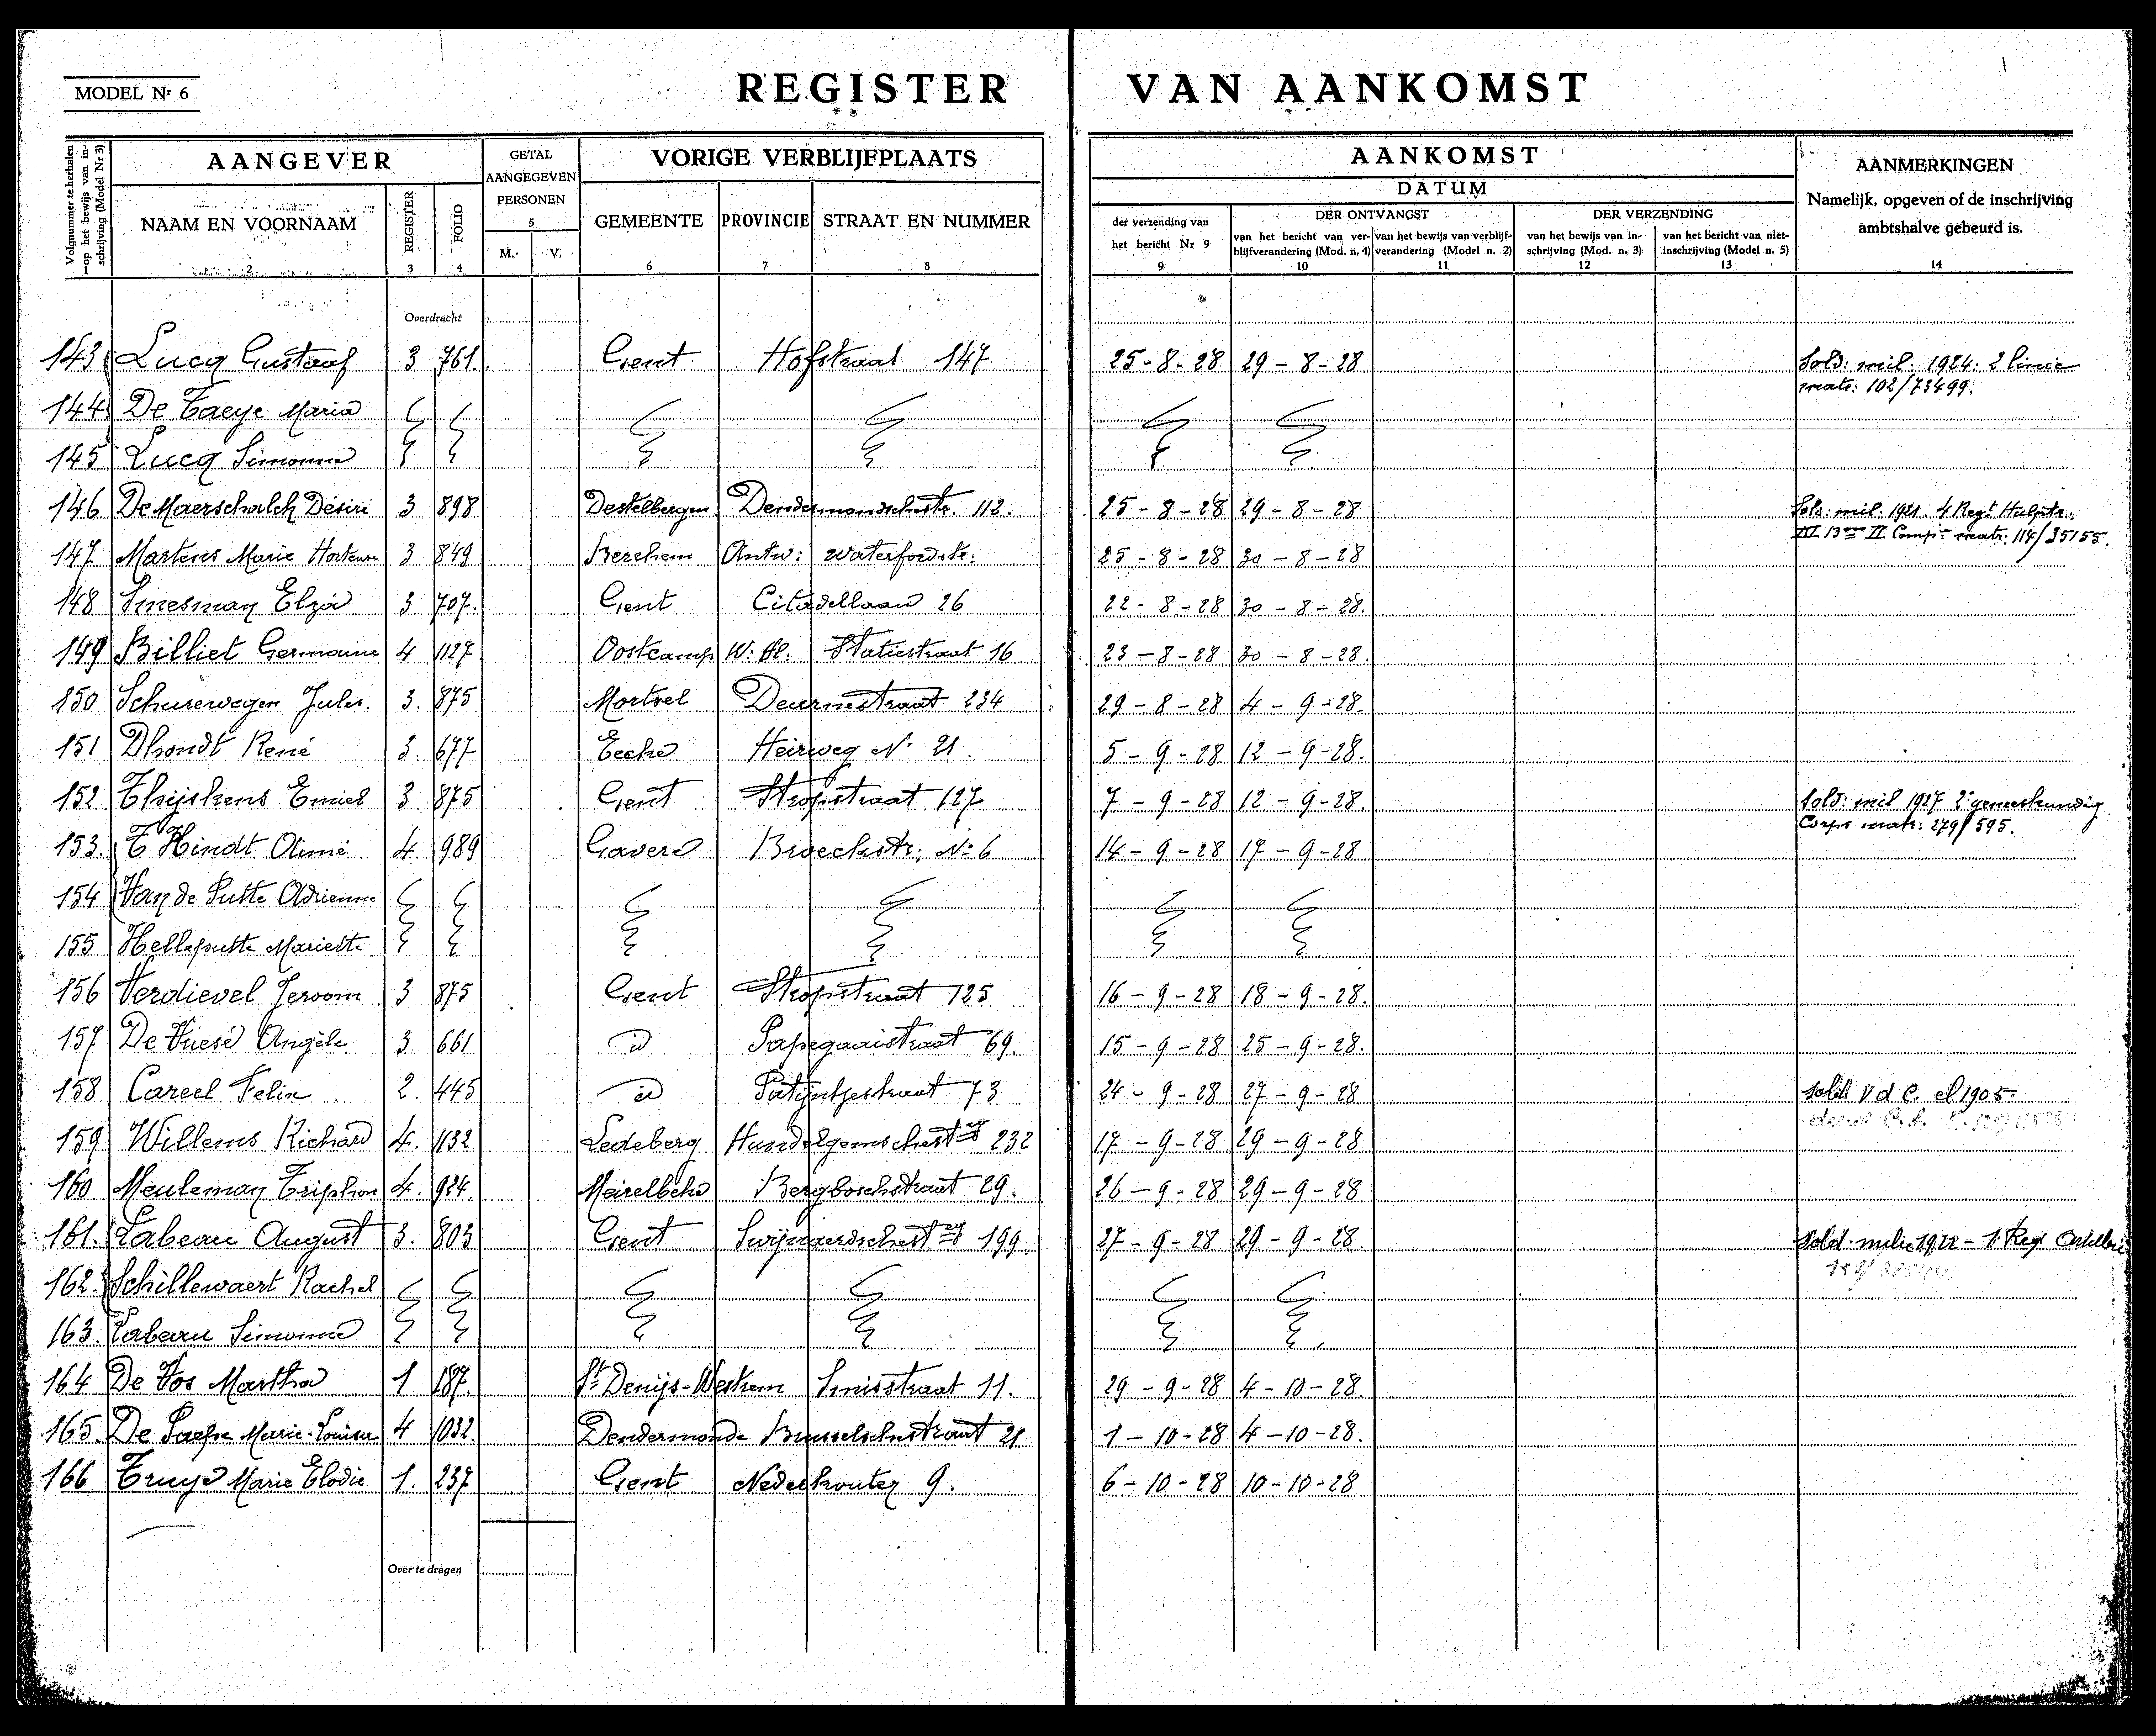 MODEL Nr 6
REGISTER VAN AANKOMST
Volgnummer te herhalen op het bewijs van inschrijving (Model Nr 3)
AANGEVER
NAAM EN VOORNAAM
2
REGISTER
3
FOLIO
4
GETAL
AANGEGEVEN
PERSONEN
5
M. V.
VORIGE VERBLIJFPLAATS
GEMEENTE PROVINCIE STRAAT EN NUMMER
6 7 8
AANKOMST
DATUM
der verzending van
het bericht Nr 9
9
DER ONTVANGST
van het bericht van ver-
blijfverandering (Mod. n. 4)
10
van het bewijs van verblijf-
verandering (Model n. 2)
11
DER VERZENDING
van het bewijs van in-
schrijving (Mod. n. 3)
12
van het bericht van niet-
inschrijving (Model n. 5)
13
AANMERKINGEN
Namelijk, opgeven of de inschrijving
ambtshalve gebeurd is.
14
Overdracht
143 Lucq Gustaaf 3 761. Gent Hofstraat 147 25-8-28 29-8-28 Sold: mil. 1924: 2 linie
matr: 102/73499.
144 De Taeye Maria
145 Lucq Simonne
146 De Maerschalck Désiré 3 898 Destelbergen Dendermondschestr. 112. 25-8-28 29-8-28 Sold: mil. 1921. 4 Regt Hulptr.
III 13en II Compie matr: 114/35155.
147 Martens Marie Hortense 3 849 Berchem Antw: Waterfordstr: 25-8-28 30-8-28
148 Smesman Elza 3 707. Gent Citadellaan 26 22-8-28 30-8-28.
149 Billiet Germaine 4 1127 Oostcamp W. Vl. Statiestraat 16 23-8-28 30-8-28.
150 Schurewegen Jules. 3. 875 Mortsel Deurnestraat 234 29-8-28 4-9-28.
151 Dhondt René 3. 677 Eecke Heirweg No 21. 5-9-28 12-9-28.
152 Thijskens Emiel 3 875 Gent Stropstraat 127 7-9-28 12-9-28. Sold: mil 1927 2e geneeskundig
Corps matr: 279/595.
153. T'Kindt Aimé 4. 989 Gavere Broeckstr: No 6 14-9-28 17-9-28
154 Van de Putte Adrienne
155 Helleputte Mariette
156 Verdievel Jeroom 3 875 Gent Stropstraat 125 16-9-28 18-9-28.
157 De Vriese Angèle 3 661 id Papegaaistraat 69. 15-9-28 25-9-28.
158 Careel Felix 2. 445 id Patijntjestraat 73 24-9-28 27-9-28 Sold V d C. cl 1905.
159 Willems Richard 4. 1132 Ledeberg Hundelgemschestwg 232 17-9-28 29-9-28
160 Meuleman Triphon 4. 924. Meirelbeke Bergboschstraat 29. 26-9-28 29-9-28
161. Labeau August 3. 803 Gent Swijnaerdschestwg 199 27-9-28 29-9-28. Sold. milic 1922 - 1 Reg. Artillerie
162. Schillewaert Rachel
163. Labeau Simonne
164 De Vos Martha 1 187. St Denijs-Westrem Smisstraat 11. 29-9-28 4-10-28.
165. De Paepe Marie-Louisa 4 1032. Dendermonde Brusselschestraat 21 1-10-28 4-10-28.
166 Truye Marie Elodie 1. 237 Gent Nederkouter 9. 6-10-28 10-10-28
Over te dragen